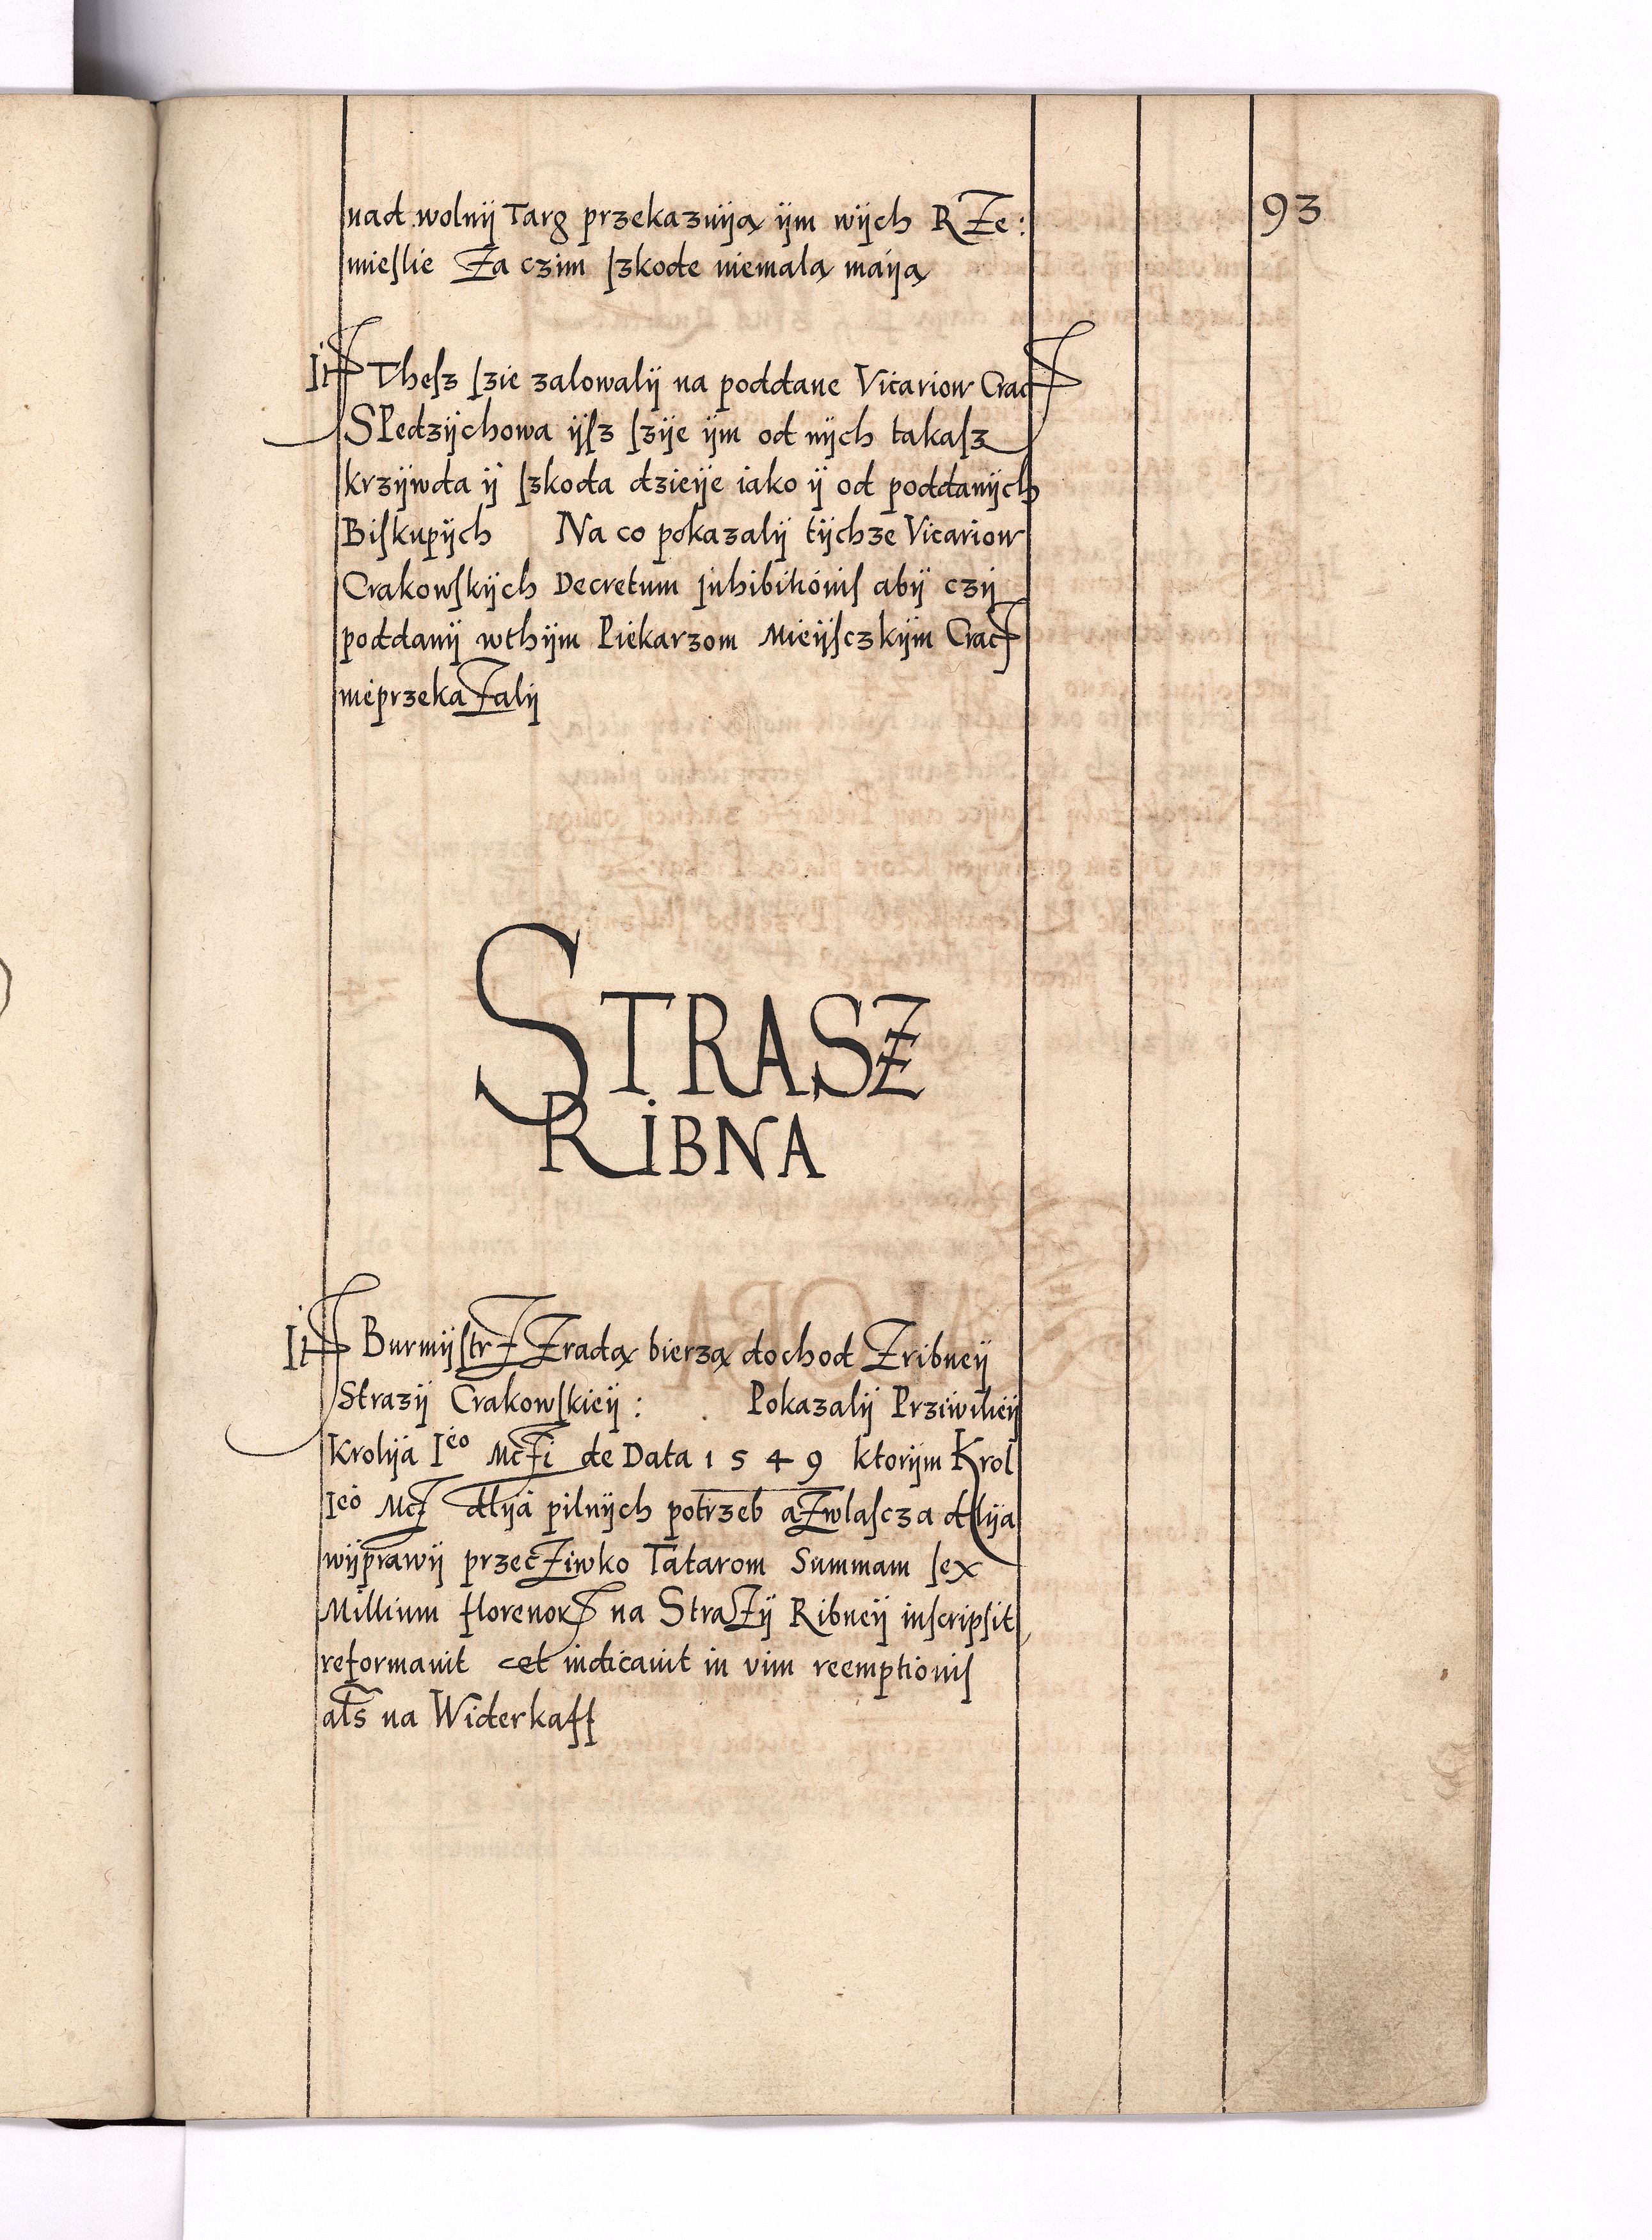 93
nad wolnÿ Targ przekazuÿą ÿm wÿch RZe:
mieſlie Za czim ſzkode niemalą maÿą
It Theſz ſzie zalowalÿ na poddane Vicariow Crac
SPedzÿchowa ÿſz ſzÿe ÿm od nÿch takaſz
krzÿwda ÿ ſzkoda dzieÿe iako ÿ od poddanÿch
Biſkupÿch Na co pokazalÿ tÿchze Vicariow
Crakowſkÿch Decretum Inhibitionis abÿ czÿ
poddanÿ wthÿm Piekarzom Mieÿſczkÿm Crac
nieprzekaZalÿ
STRASZ
RIBNA
It BurmÿſtrZ Zradą bierzą dochod Zribneÿ
Strazÿ Crakowſkieÿ : Pokazalÿ Prziwilieÿ
Krolÿa Ieo MczI de Data 1549 ktorÿm Krol
Ieo Mcz dlÿa pilnÿch potrzeb aZwlaſcza dlÿa
wÿprawÿ przecZiwko Tatarom Summam ſex
Millium florenor na StraZÿ Ribneÿ inſcripſit
reformauit et indicauit in vim reemptioniſ
als na Widerkaff